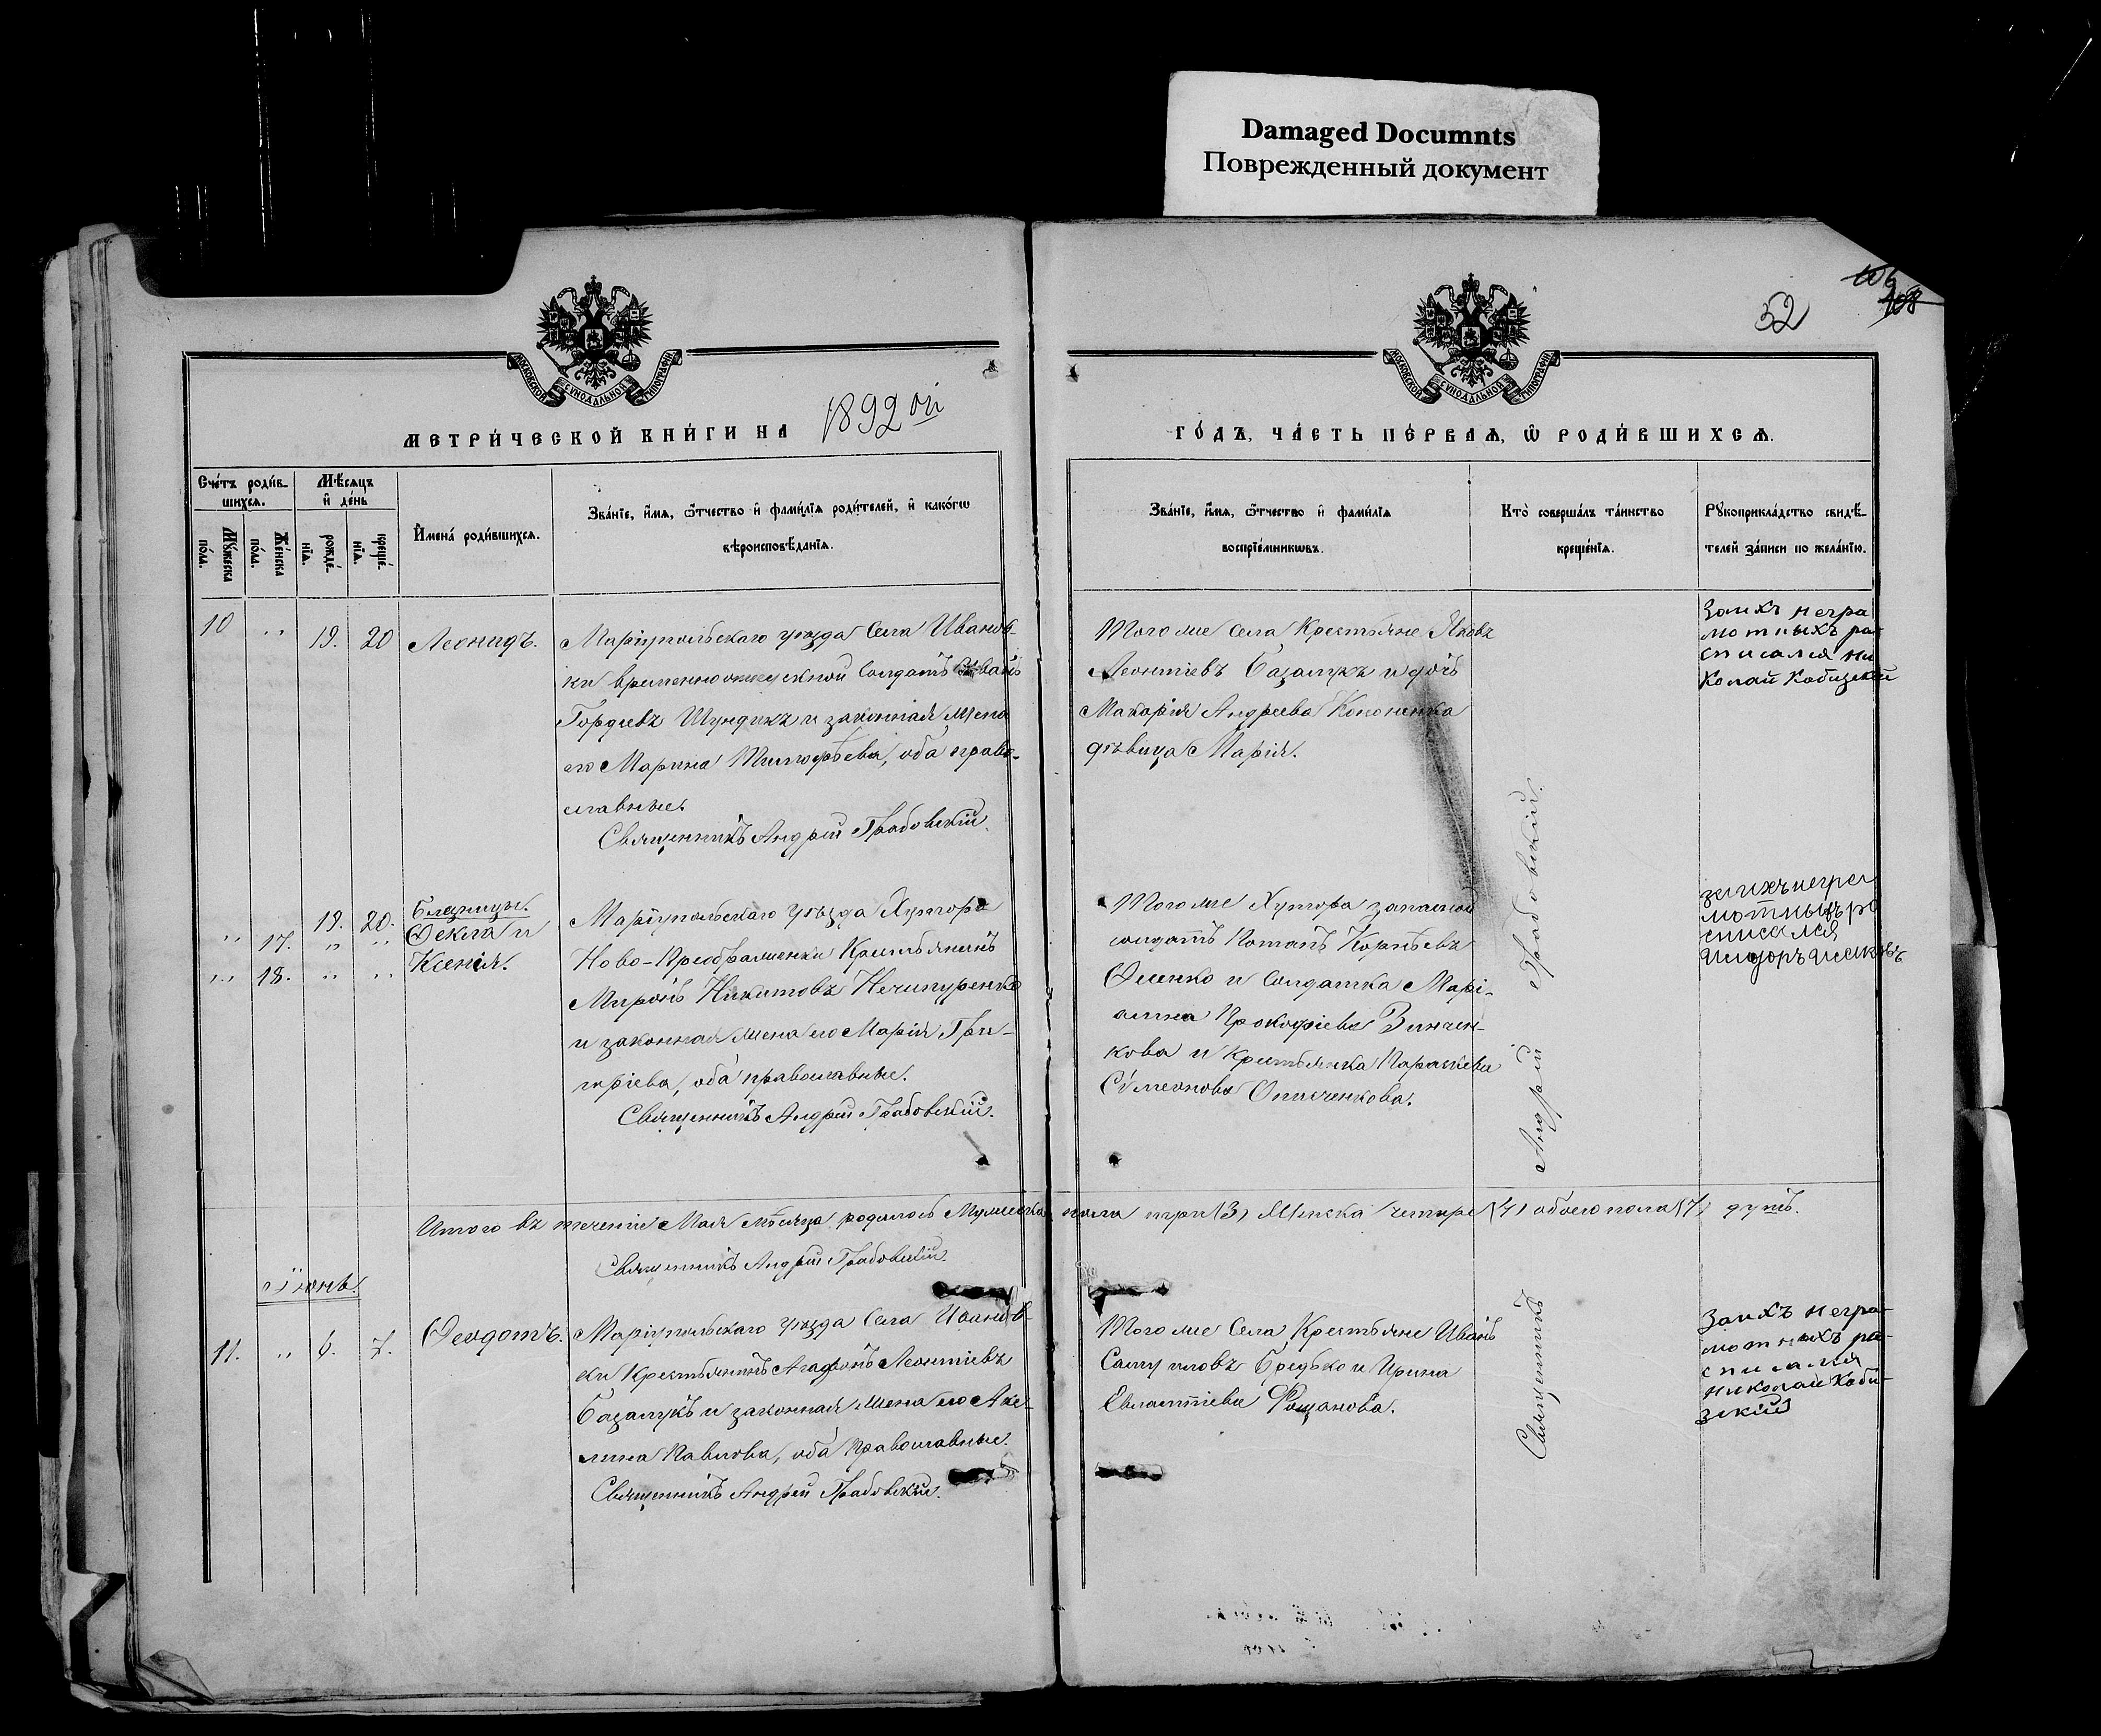 Damaged Documnts
Поврежденный документ
52
108
МОСКОВСКОЙ СѴНОДАЛЬНОЙ ТИПОГРАФІИ
МОСКОВСКОЙ СѴНОДАЛЬНОЙ ТИПОГРАФІИ
МЕТРИ́ЧЕСКОЙ КНИ́ГИ НА 1892 ой
ГО́ДЪ, ЧА́СТЬ ПЕ́РВАѦ, Ѡ҆ РОДИ́ВШИХСѦ.
Сче́тъ роди́в-
шихсѧ.
Мꙋ́жеска
по́ла.
Же́нска
по́ла.
Мѣ́сѧцъ
и҆ де́нь
рожде́-
нїѧ.
креще́-
нїѧ.
И҆мена̀ роди́вшихсѧ.
Зва́нїе, и҆́мѧ, ѻ҆́тчество и҆ фами́лїѧ роди́телей, и҆ како́гѡ
вѣроисповѣ́данїѧ.
Зва́нїе, и҆́мѧ, ѻ҆́тчество и҆ фами́лїѧ
воспрїе́мникѡвъ.
Кто̀ соверша́лъ та́инство
креще́нїѧ.
Рꙋкоприкла́дство свидѣ́-
телей за́писи по жела́нїю.
10 „ 19. 20 Леонидъ.
Маріупольскаго уѣзда Села Иванов-
ки временноотпускной Солдатъ Иванъ
Гордіевъ Шундикъ и законная жена
его Марина Тимоѳѣева, оба право-
славные.
Священникъ Андрей Грабовскій.
Того же Села Крестьяне Яковъ
Леонтіевъ Базалукъ и дочь
Макарія Андреева Кононенка
дѣвица Марія.
За ихъ негра
мотныхъ ра
списался Ни
колай Кобизскій
Близнецы.
19. 20. Ѳекла и
„ 17. „ „
Ксенія.
„ 18. „ „
Маріупольскаго Уѣзда Хутора
Ново-Преображенки Крестьянинъ
Миронъ Никитовъ Нечипуренко
и законная жена его Марія Дми-
тріева, оба православные.
Священникъ Андрей Грабовскій.
Того же Хутора запасной
солдатъ Потапъ Корнѣевъ
и Солдатка Марі-
анна Прокофіева Зинчен-
кова и Крестьянка Параскева
Сѵмеонова
за ихъ негра
мотныхъ ра
списался
Итого въ теченіе Мая мѣсяца родилось Мужеска пола три (3) Женска четыре (4) обоего пола (7) душъ.
Священникъ Андрей Грабовскій.
Іюнь.
11. „ 6. 7. Ѳеодотъ.
Маріупольскаго уѣзда Села Иванов-
ки Крестьянинъ Агафонъ Леонтіевъ
Базалукъ и законная жена его Аке-
лина Павлова, оба Православные.
Священникъ Андрей Грабовскій.
Того же Села Крестьяне Иванъ
Самуиловъ Бредько и Ирина
Евлампіева
За ихъ негра-
мотныхъ ра-
списался
Николай Коби-
зскій
Священникъ Андрей Грабовскій.